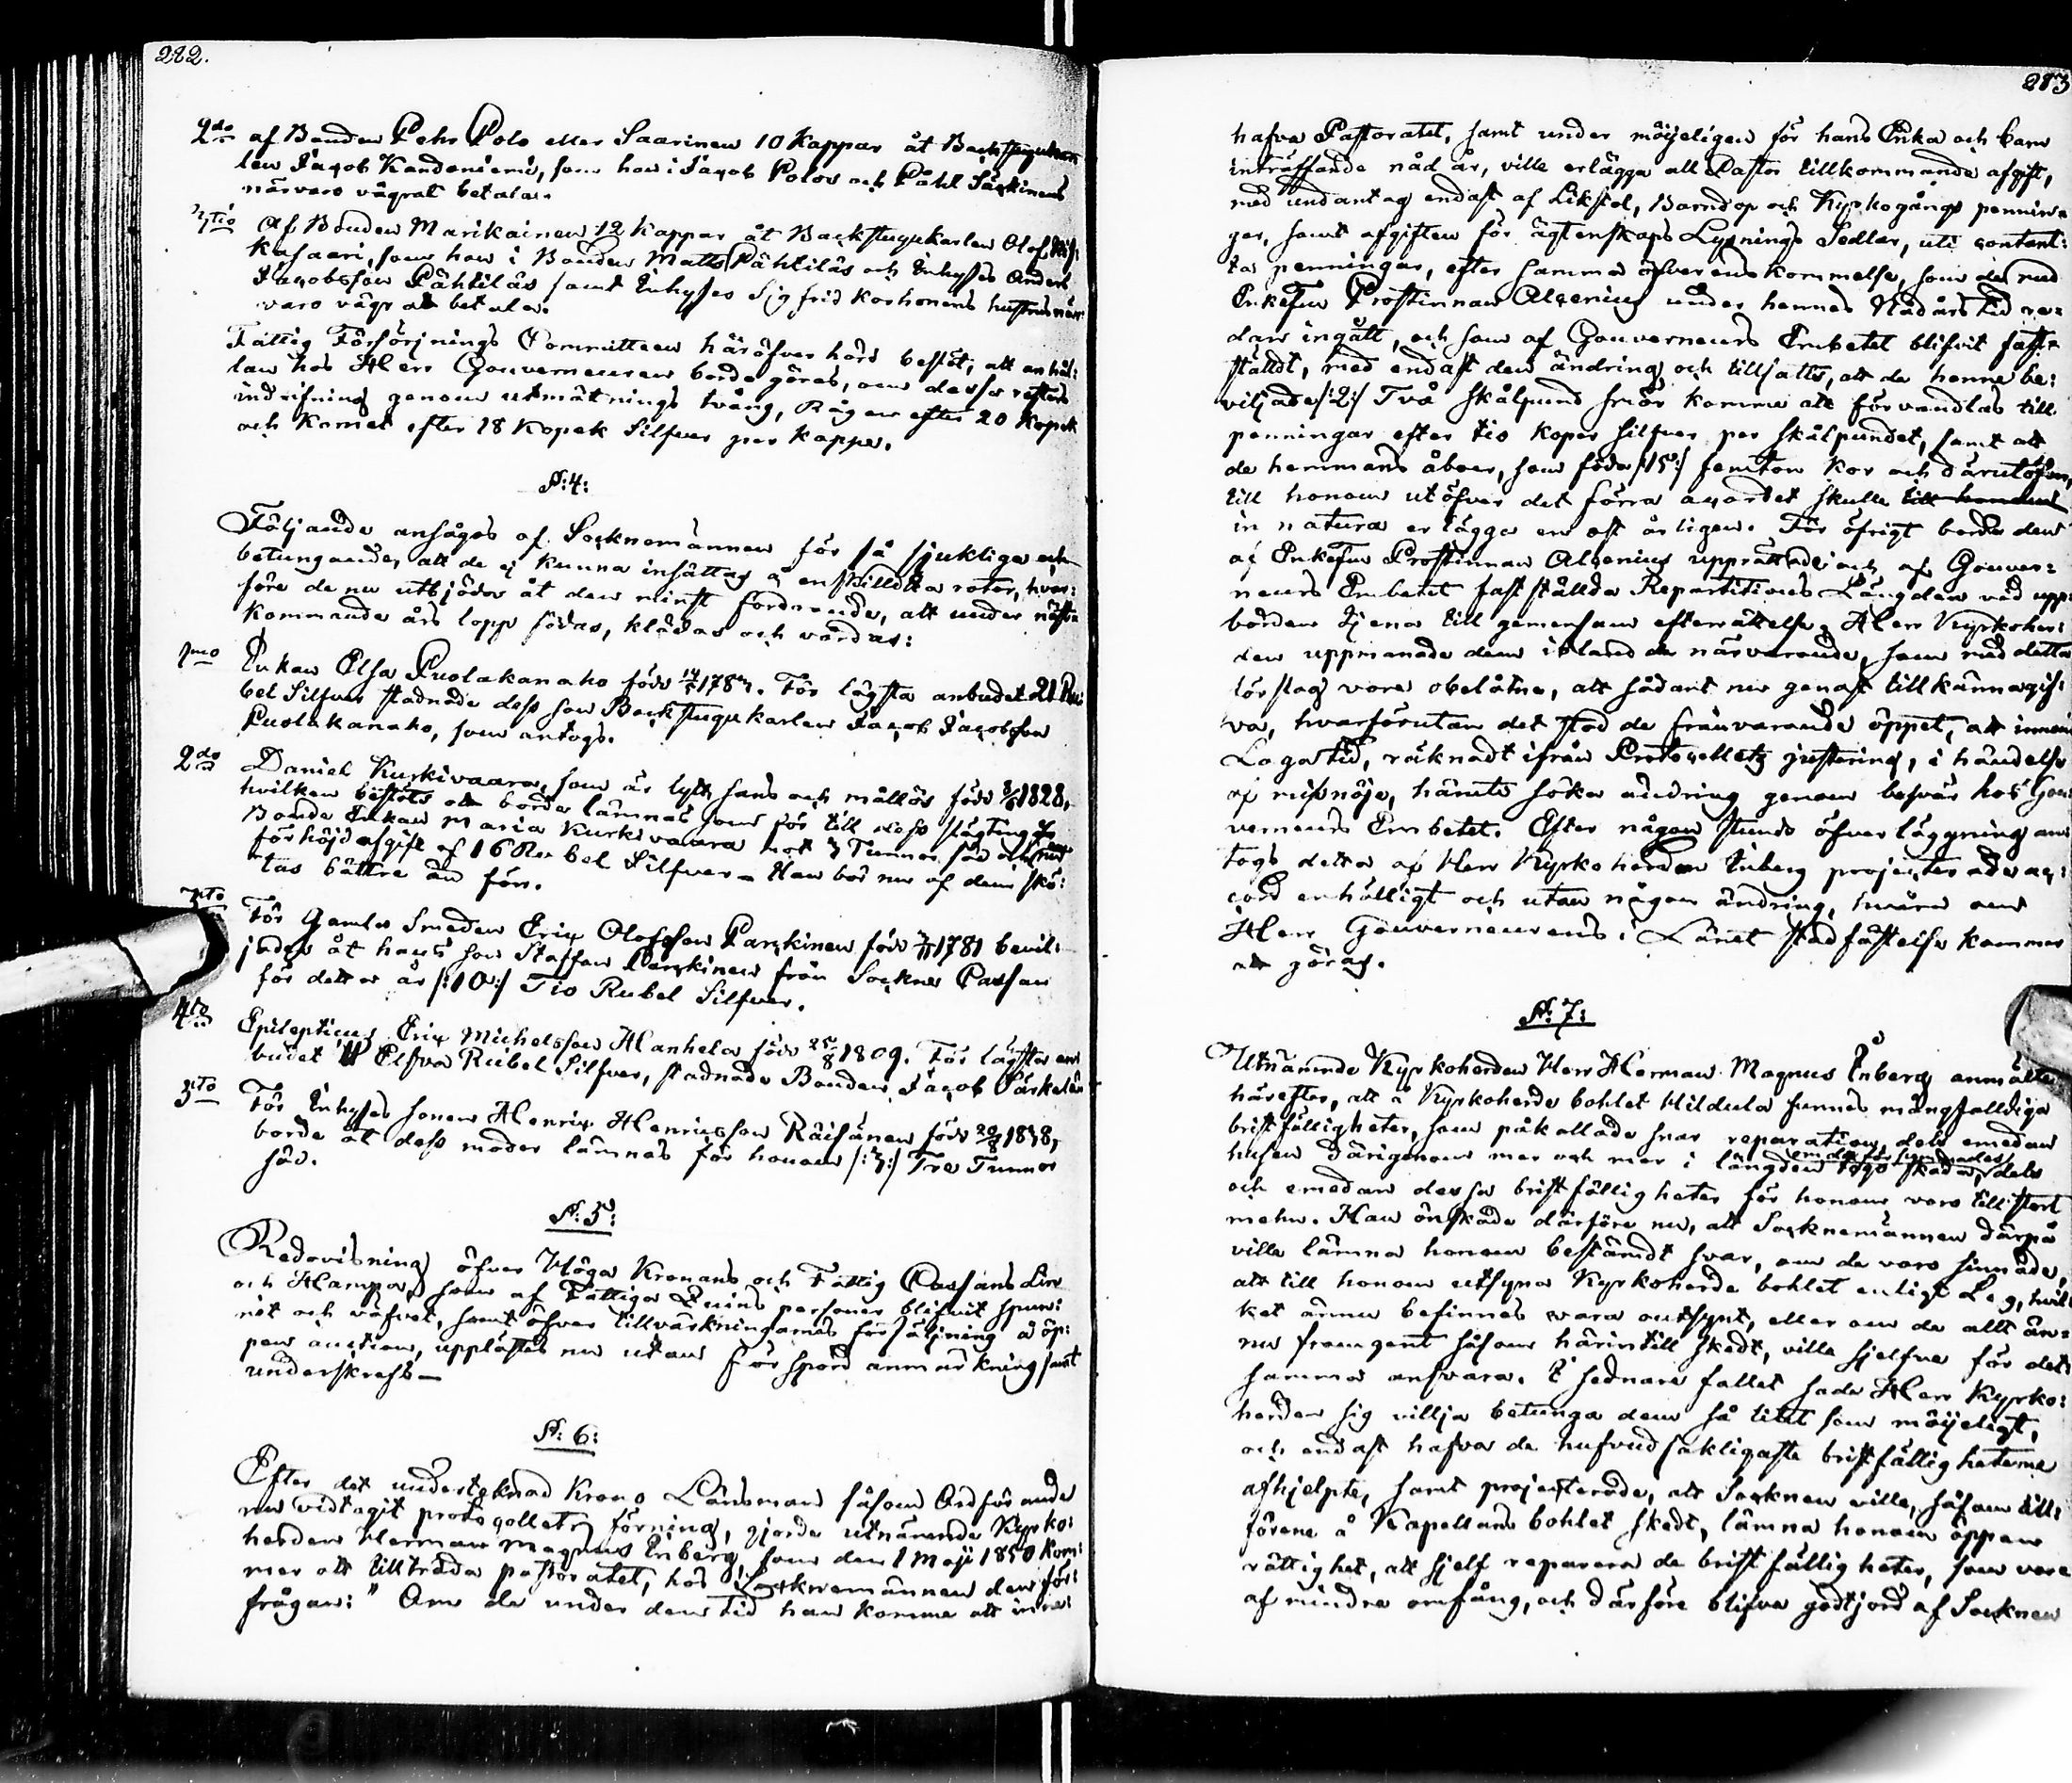 282.
2do af Bonden Pehr Polo eller Saarinen 10 Kappar åt Backstugukar
len Jacob Kandoniemi, som han i Jacob Polos och Påhl Säckinens
närvaro vägrat betala.
3tio Af Bonden Marikainen 12 Kappar åt Backstugukarlen Olof
Kasaari, som han i Bonden Matts Pähtiläs och Inhyses Anders
Jacobsson Pähtiläs samt Inhyses Sigfrid Korhonens hustrus när-
varo vägrat betala.
Fattig Försörjnings Committeen häröfver hörd beslöt, att anhål:
lan hos Herr Gouverneuren borde göras, om dessa resters
indrifning genom utmätnings tvång, Rågen efter 20 Kopek
och Kornet efter 18 Kopek Silfver per kappe.
§:4:
Följande ansågos af Socknemännen för så sjukliga och
betungande, att de ej kunna insättas å enskilldta rotor, hvar:
före de nu utbjödos åt den minst fordrande, att under nästa
kommande års lopp födas, klädas och vårdas:
1mo Enkan Elsa Puolakanaho född 14/5 178. För lägsta anbudet 21 Ru:
bel Silfver stadnade dess son Backstugukarlen Jacob Jacobsson
Puolakanaho, som antogs.
2do Daniel Kurkivaara, som är lytt, sans och mållös född 1828,
hvilken beslöts att borde lämnas som för till dess slägting
Bonde Enkan Maria Kurkivaara mot 3 Tunnor säd och en
förhöjd afgift af 16 Rubel Silfver – Han bör nu af dem skö:
tas bättre än förr.
3tio För Gamla Smeden Eric Olofsson Parckinen född 1781 bevil:
jades åt hans son Staffan Parckinen från Sockne Cassan
för detta år /:10:/ Tio Rubel Silfver.
4to Epilepticus Eric Michelsson Hanhela född 25/8 1809. För lägsta an
budet 11 Elfva Rubel Silfver, stadnade Bonden Jacob Särkelä
5to För Inhyses sonen Henric Henricsson Räisänen född 1838,
borde åt dess moder lämnas för honom /:3:/ Tre Tunnor
säd.
§:5:
Redovisning öfver Höga Kronans och Fattig Cassans Lin
och Hampa, som af Fattiga Quins personer blifvit spun:
nit och väfvet, samt öfver tillvärkningarnas försäljning å öp:
pen auction, upplästes nu utan försport anmärkning samt
underskrefs –
§: 6:
Efter det undertecknad Krono Länsman såsom Ordförande
nu vidtagit protocollets förning, gjorde utnämnde Kyrko:
herden Herman Magnus Inberg, som den 1 Maji 1850 kom:
mer att tillträda pastoratet, hos Socknemännen den för:
frågan: " Om de under den tid han komme att inne:
283
hafva Pastoratet, samt under möijeligen för hans Enka och barn
inträffande nåd år, ville erlägga all Pastor tillkommande afgift,
med undantag endast af Likstol, Barndop och Kyrkogångs pennin=
gar, samt afgiften för ägtenskaps Lysnings Sedlar, uti contant:
ta penningar, efter samma öfverenskommelse, som de med
Enkefru Prostinnan Alcenius under hennes Nådårs tid re=
dan ingått, och som af Gouverneurs Embetet blifvit fast=
ställdt, med endast den ändring och tillsatts, att de henne be:
viljade /:2:/ Två Skålpund smör komme att förvandlas till
penningar efter tio kopek silfver per skålpundet, samt att
de hemmans åboer, som föda /:15:/ femton kor och därutöfver,
till honom utöfver det förra accordet skulle till honom
in natura erlägga en ost årligen. För öfrigt borde den
af Enkefru Prostinnan Alcenius upprättade och af Gouver=
neurs Embetet fastställda Repartitions Längden vid upp:
börden tjena till gemensam efterrättelse. Herr Kyrkoher:
den uppmanade dem ibland de närvarande, som med detta
förslag voro obelåtne, att sådant nu genast tillkännagif:
va, hvarförutan det stod de frånvarande öppet, att innom
Lagatid, räknadt ifrån Protocollets justering, i händelse
af missnöje, häruti söka ändring genom besvär hos Gou
verneurs Embetet. Efter någon stunds öfverläggning an
togs detta af Herr Kyrkoherden Inberg projecterade ac:
cord enhälligt och utan någon ändring, hvarå och
Herr Gouverneurens i Länet stadfästelse kommer
att göras.
§: 7:
Utnämnde Kyrkoherden Herr Herman Magnus Inberg anmälte
härefter, att å Kyrkoherde bohlet Hildula funnes mångfalldiga
bristfälligheter, som påkallade snar reparation, dels emedan
husen därigenom mer och mer i längden togo skada, dels
och emedan dessa bristfälligheter för honom voro till stort
mehn. Han önskade därföre nu, att Socknemännen därpå
ville lämna honom bestämdt svar, om de voro sinnade,
att till honom utsyna Kyrkoherde bohlet enligt Lag, hvil
ket ännu befinnes vara outsynt, eller om de allt än=
nu framgent såsom härintill skedt, ville sjelfva för det:
samma ansvara. I sednare fallet sade Herr Kyrko:
herden sig villja betunga dem så litet som möijeligt,
och endast hafva de hufvudsakligaste bristfälligheterna
afhjelpta, samt projecterade, att Socknen ville, såsom till:
förene å Kapellans bohlet skedt, lämna honom öppen
rättighet, att sjelf reparera de bristfälligheter, som vore
af mindre omfång, och därföre blifva godtgjord af Socknen